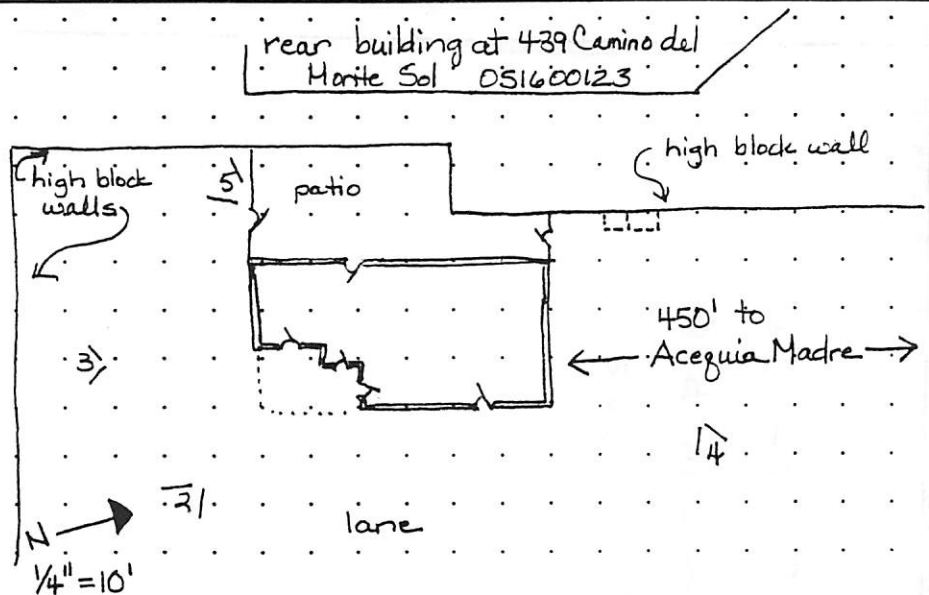 rear building at 439 Camino del
Monte Sol 051600123
high block
walls
5
patio
high block wall
3
450' to
Acequia Madre
4
2
lane
N
1/4" = 10'